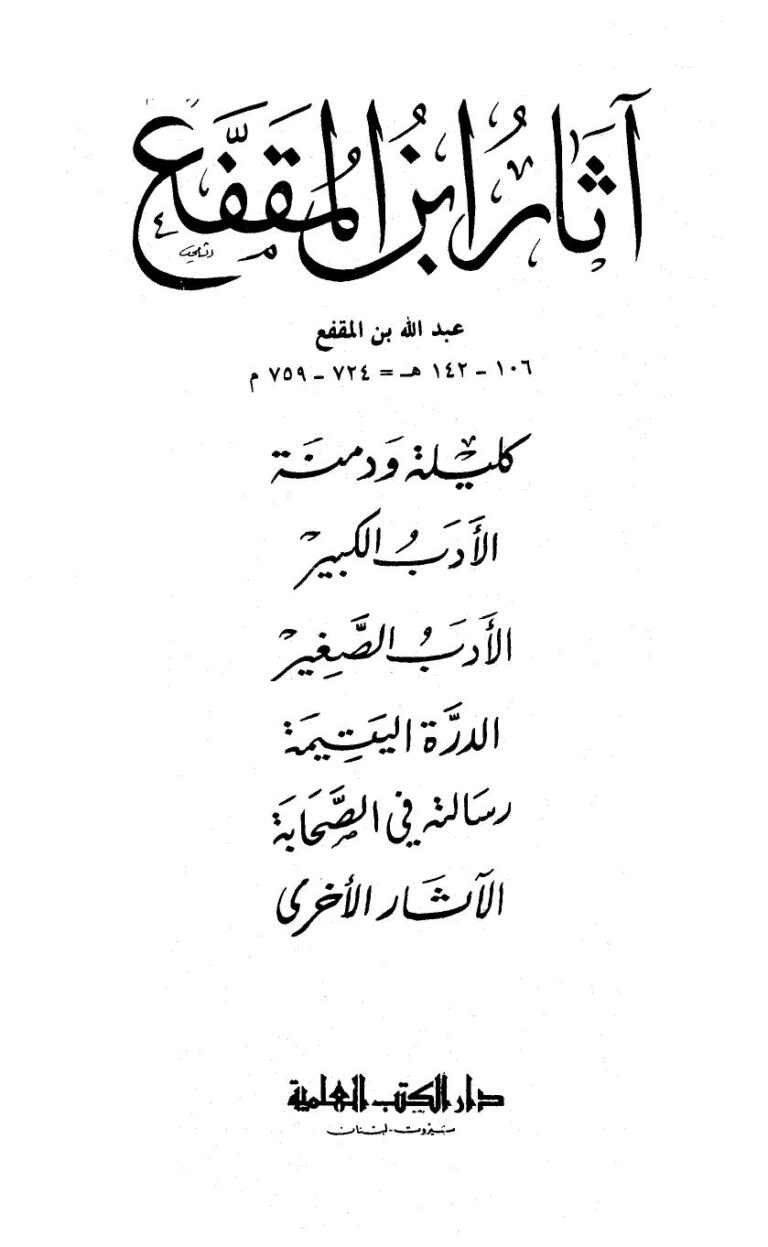 آثَارُ ابْنُ المُقَفَّع
عبد الله بن المقفع
١٠٦ - ١٤٢ هـ = ٧٢٤ - ٧٥٩ م
كليلة وَدمنَة
الأَدَبُ الكبير
الأَدَبُ الصَّغِير
الدرَّة اليَتِيمَة
رسَالته في الصَّحَابَة
الآثَار الأخرى
دار الكتب العلمية
بَيروت - لبنان